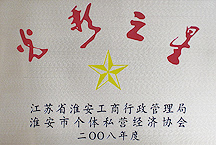 光彩之星
江苏省淮安工商行政管理局
淮安市个体私营经济协会
二〇〇八年度